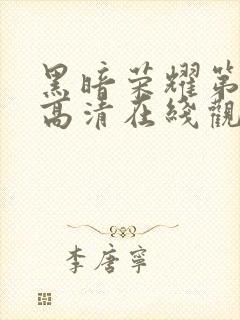 黑暗荣耀第
高清在线觀
李唐寧